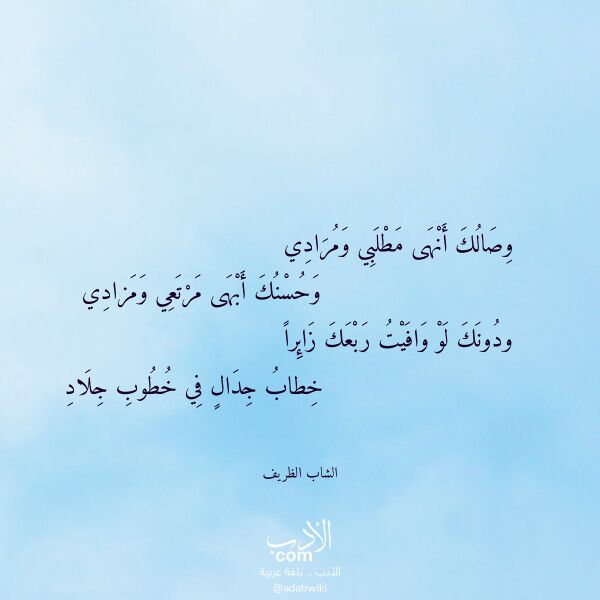 وِصَالُكَ أَنْهَى مَطْلَبِي وَمُرَادِي
وَحُسْنُكَ أَبْهَى مَرْتَعِي وَمَزادِي
ودُونَكَ لَوْ وَافَيْتُ رَبْعَكَ زَايِراً
خِطابُ جِدَالٍ فِي خُطُوبِ جِلَادِ
الشاب الظريف
الأدب
.com
الأدب .. بلغة عربية
@adabwiki